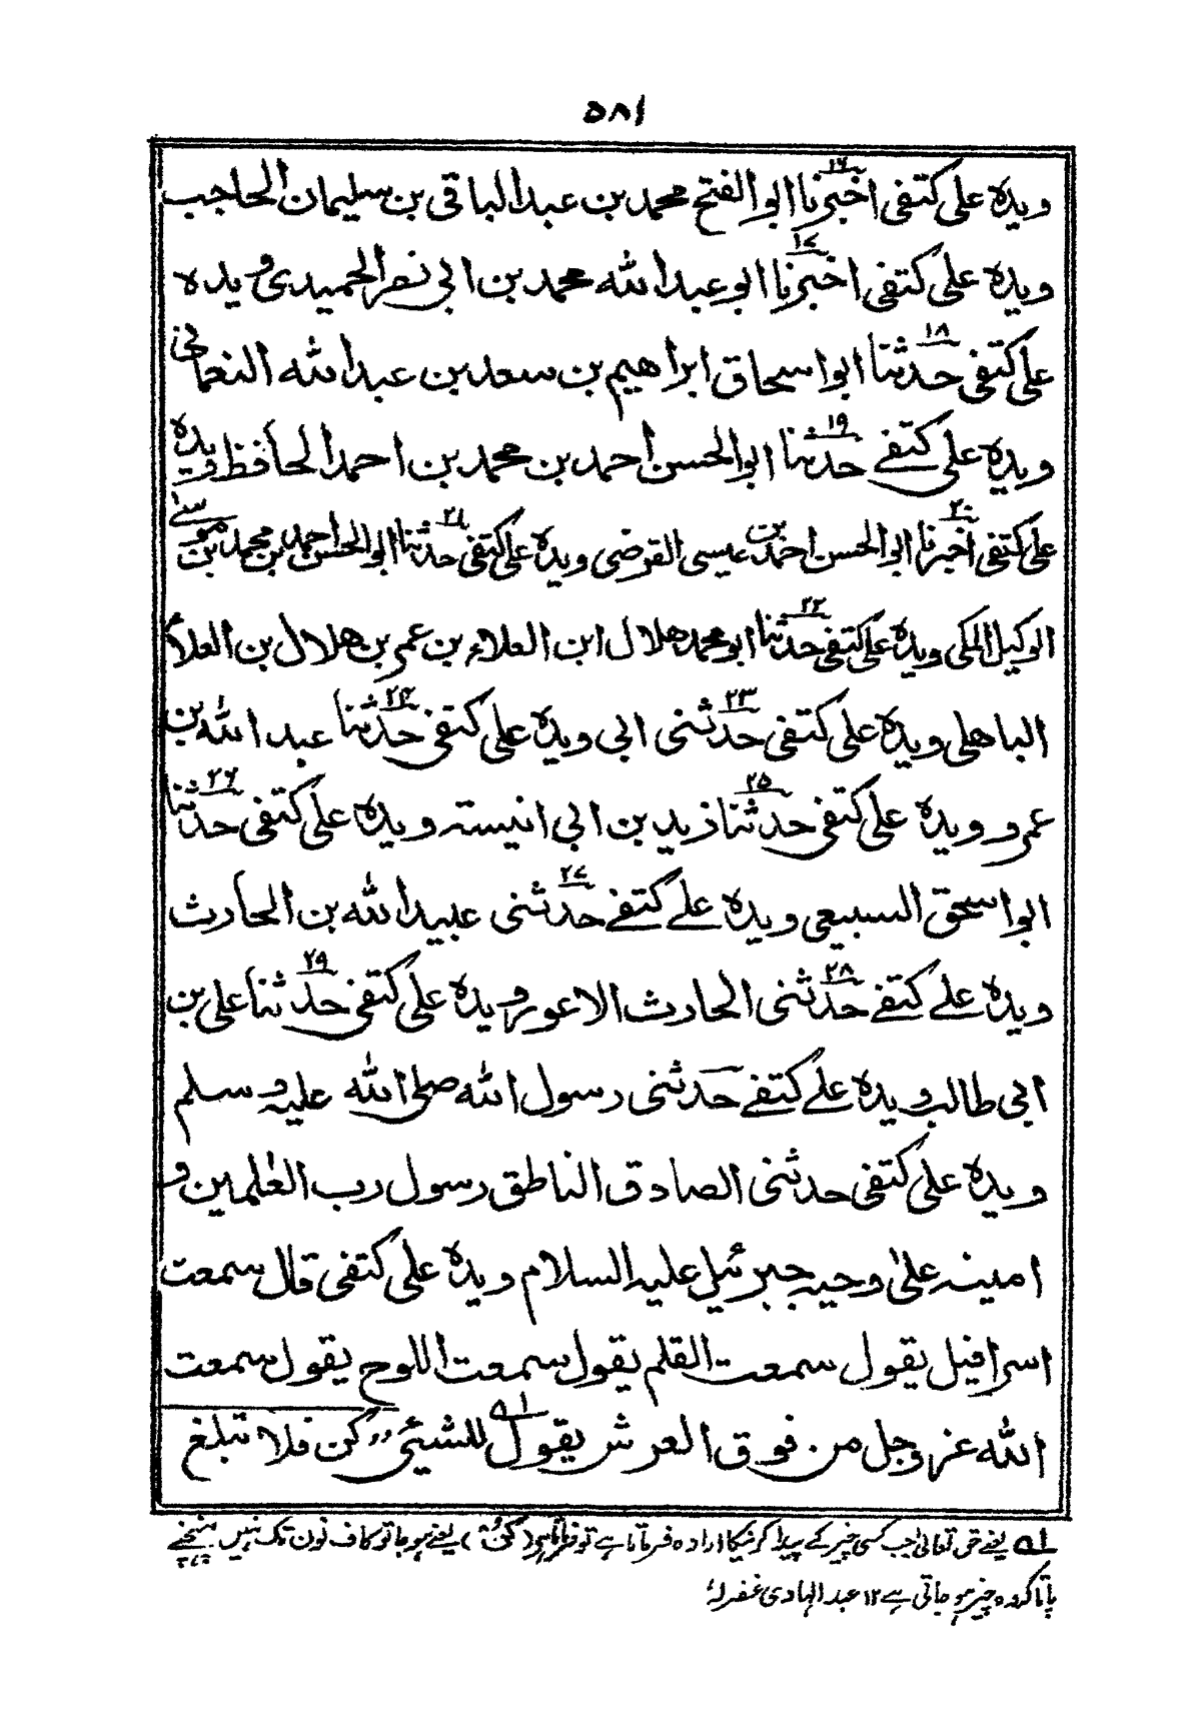 ٥٨١
ويده على كتفى اخبرنا١٦ ابو الفتح محمد بن عبد الباقى بن سليمان الحاجب
ويده على كتفى اخبرنا١٧ ابو عبد الله محمد بن ابى نصر الحميدى ويده
على كتفى حدثنا١٨ ابو اسحاق ابراهيم بن سعد بن عبد الله النعمانى
ويده على كتفے حدثنا١٩ ابو الحسن احمد بن محمد بن احمد الحافظ ويده
على كتفى اخبرنا٢٠ ابو الحسن احمد بن عيسى القرضى ويده على كتفى حدثنا٢١ ابو الحسن احمد بن محمد بن موسےٰ
الوكيل المكى ويده على كتفى حدثنا٢٢ ابو محمد هلال ابن العلاء بن عمر بن هلال بن العلاء
الباهلى ويده على كتفى حدثنى٢٣ ابى ويده على كتفى حدثنا٢٤ عبد الله بن
عمرو ويده على كتفى حدثنا٢٥ زيد بن ابى انيسته ويده على كتفى حدثنا٢٦
ابو اسحق السبيعى ويده علے كتفے حدثنى٢٧ عبيد الله بن الحارث
ويده علے كتفے حدثنى٢٨ الحارث الاعور ويده على كتفى حدثنا٢٩ على بن
ابى طالب ويده علے كتفے حدثنى رسول الله صلى الله عليه وسلم
ويده على كتفى حدثنى الصادق الناطق رسول رب العٰلمين و
امينه علىٰ وحيه جبرئيل عليه السلام ويده على كتفى قال سمعت
اسرافيل يقول سمعت القلم يقول سمعت اللوح يقول سمعت
الله عز وجل من فوق العرش يقول للشيئ ؁١ "كن فلا تبلغ
؁١ یعنے حق تعالیٰ جب کسی چیز کے پیدا کرنیکا ارادہ فرماتا ہے تو فرماتا ہے (کُنْ) یعنے ہو جا تو کاف نون تک نہیں پہنچنے
پاتا کہ وہ چیز ہو جاتی ہے ١٢ عبد الہادی غفرلہٗ